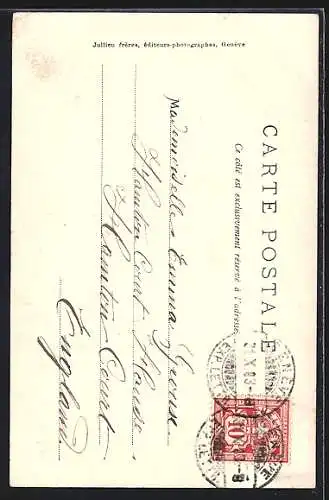 Jullien frères, éditeurs-photographes, Genève
CARTE POSTALE
Ce côté est exclusivement réservé à l'adresse.
Mademoiselle Emma
Hampton Court House
Hampton Court
England
10